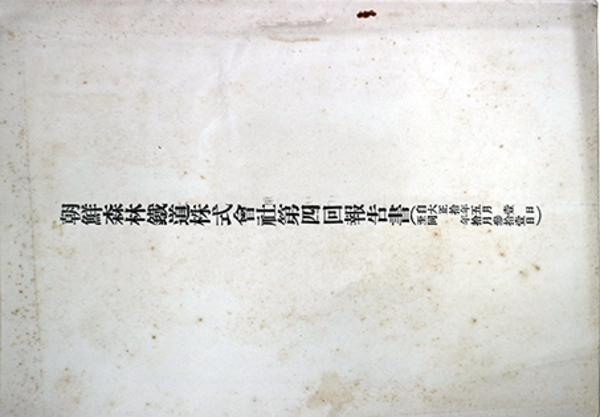 朝鮮森林鐵道株式會社第四回報告書(自大正拾年五月壹日
至同年拾月參拾壹日)